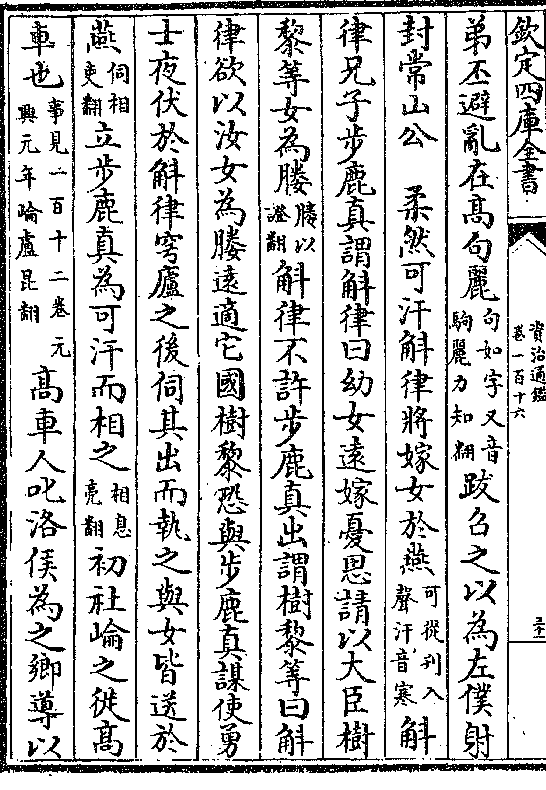 欽定四庫全書
資治通鑑
卷一百十六
弟丕避亂在高句麗句如字又音駒麗力知翻跋召之以為左僕射
封常山公　柔然可汗斛律將嫁女於燕可從刋入聲汗音寒斛
律兄子步鹿真謂斛律曰幼女逺嫁憂思請以大臣樹
黎等女為媵媵以證翻斛律不許步鹿真出謂樹黎等曰斛
律欲以汝女為媵逺適它國樹黎恐與步鹿真謀使勇
士夜伏於斛律穹廬之後伺其出而執之與女皆送於
燕伺相吏翻立步鹿真為可汗而相之相息亮翻初社崘之徙高
車也事見一百十二卷元興元年崘盧昆翻高車人叱洛侯為之鄉導以